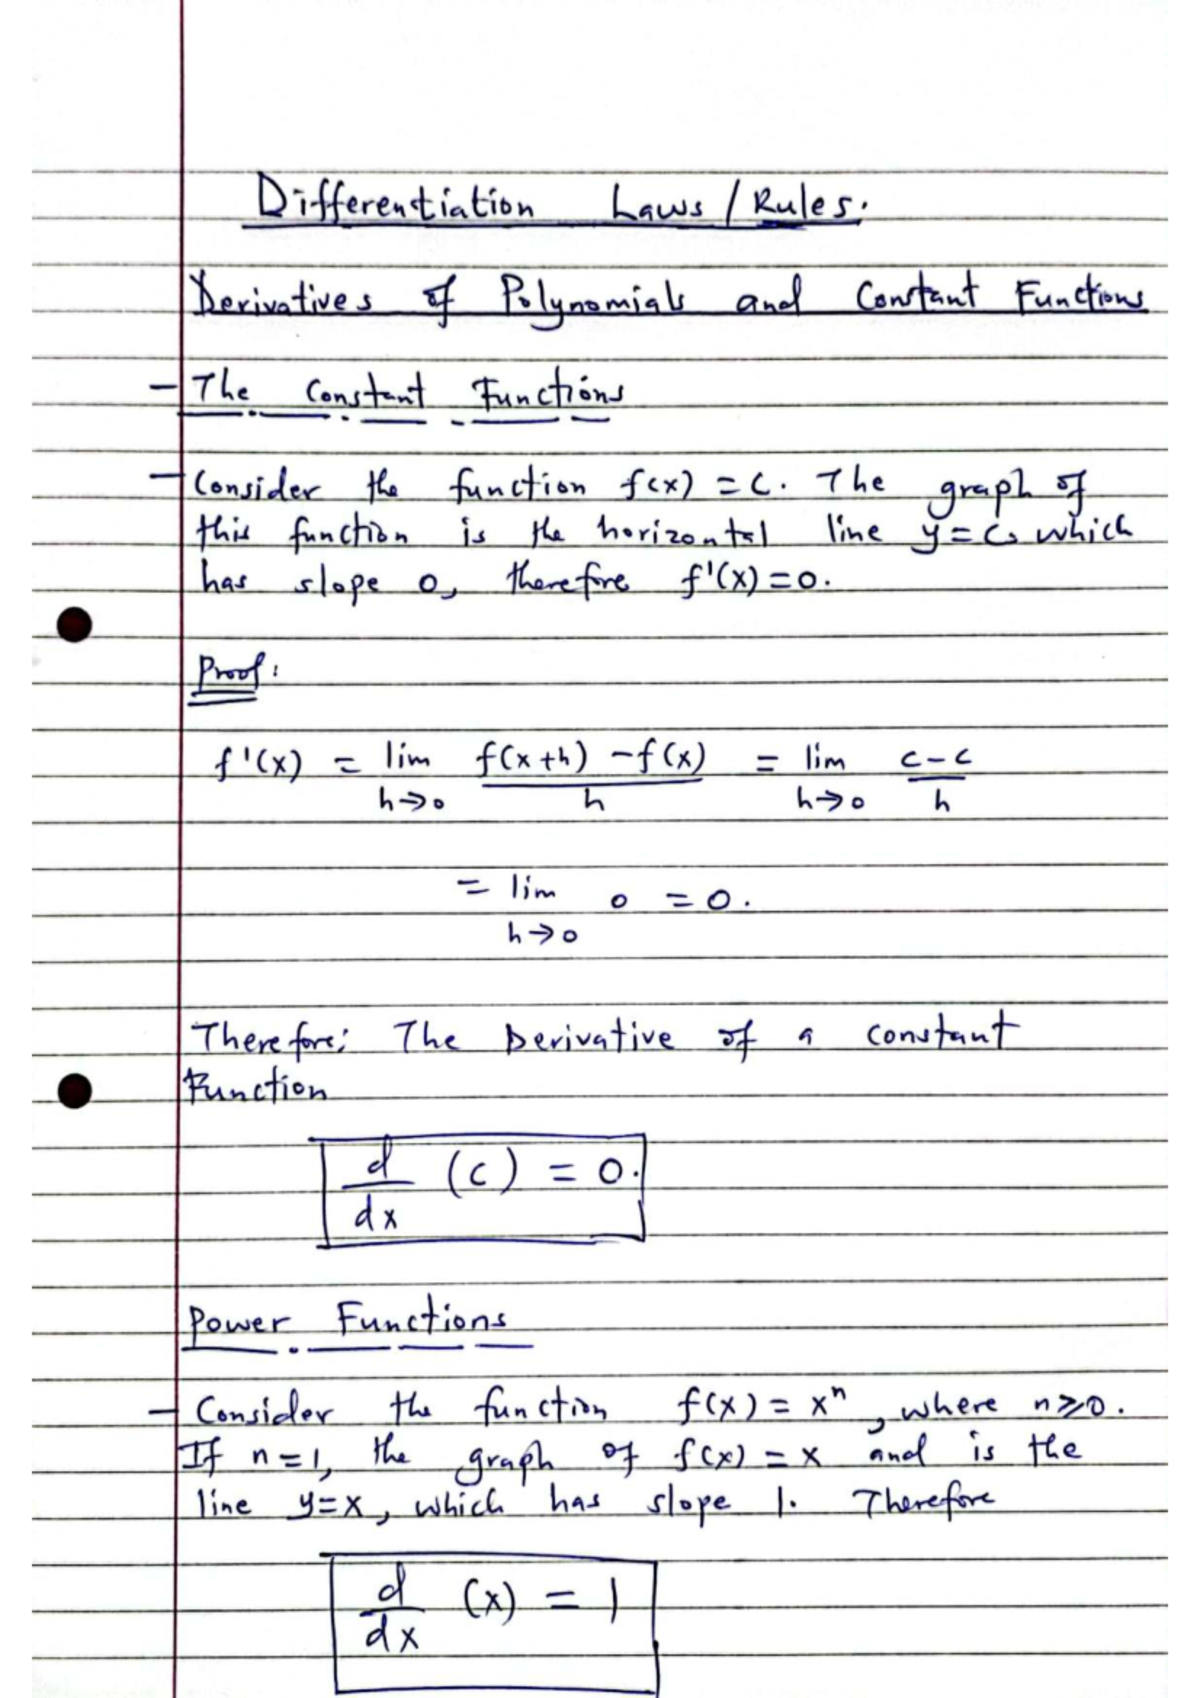 Differentiation Laws / Rules.
Derivatives of Polynomials and Constant Functions
- The Constant Functions
- Consider the function f(x) = c. The graph of
this function is the horizontal line y = c, which
has slope 0, therefore f'(x) = 0.
Proof:
f'(x) = lim h→0 (f(x+h) - f(x))/h = lim h→0 (c-c)/h
= lim h→0 0 = 0.
Therefore; The Derivative of a constant
Function
d/dx (c) = 0.
Power Functions
- Consider the function f(x) = xⁿ, where n⩾0.
If n = 1, the graph of f(x) = x and is the
line y=x, which has slope 1. Therefore
d/dx (x) = 1